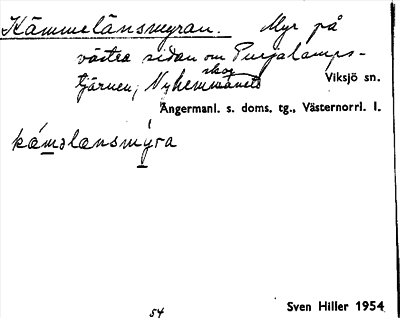 Kämmelänsmyran. Myr på
västra sidan om Purjalamps-
tjärnen, Nyhemmanets
skog
Viksjö sn.
Ångermanl. s. doms. tg., Västernorrl. l.
kámǝlænsmýra
54
Sven Hiller 1954